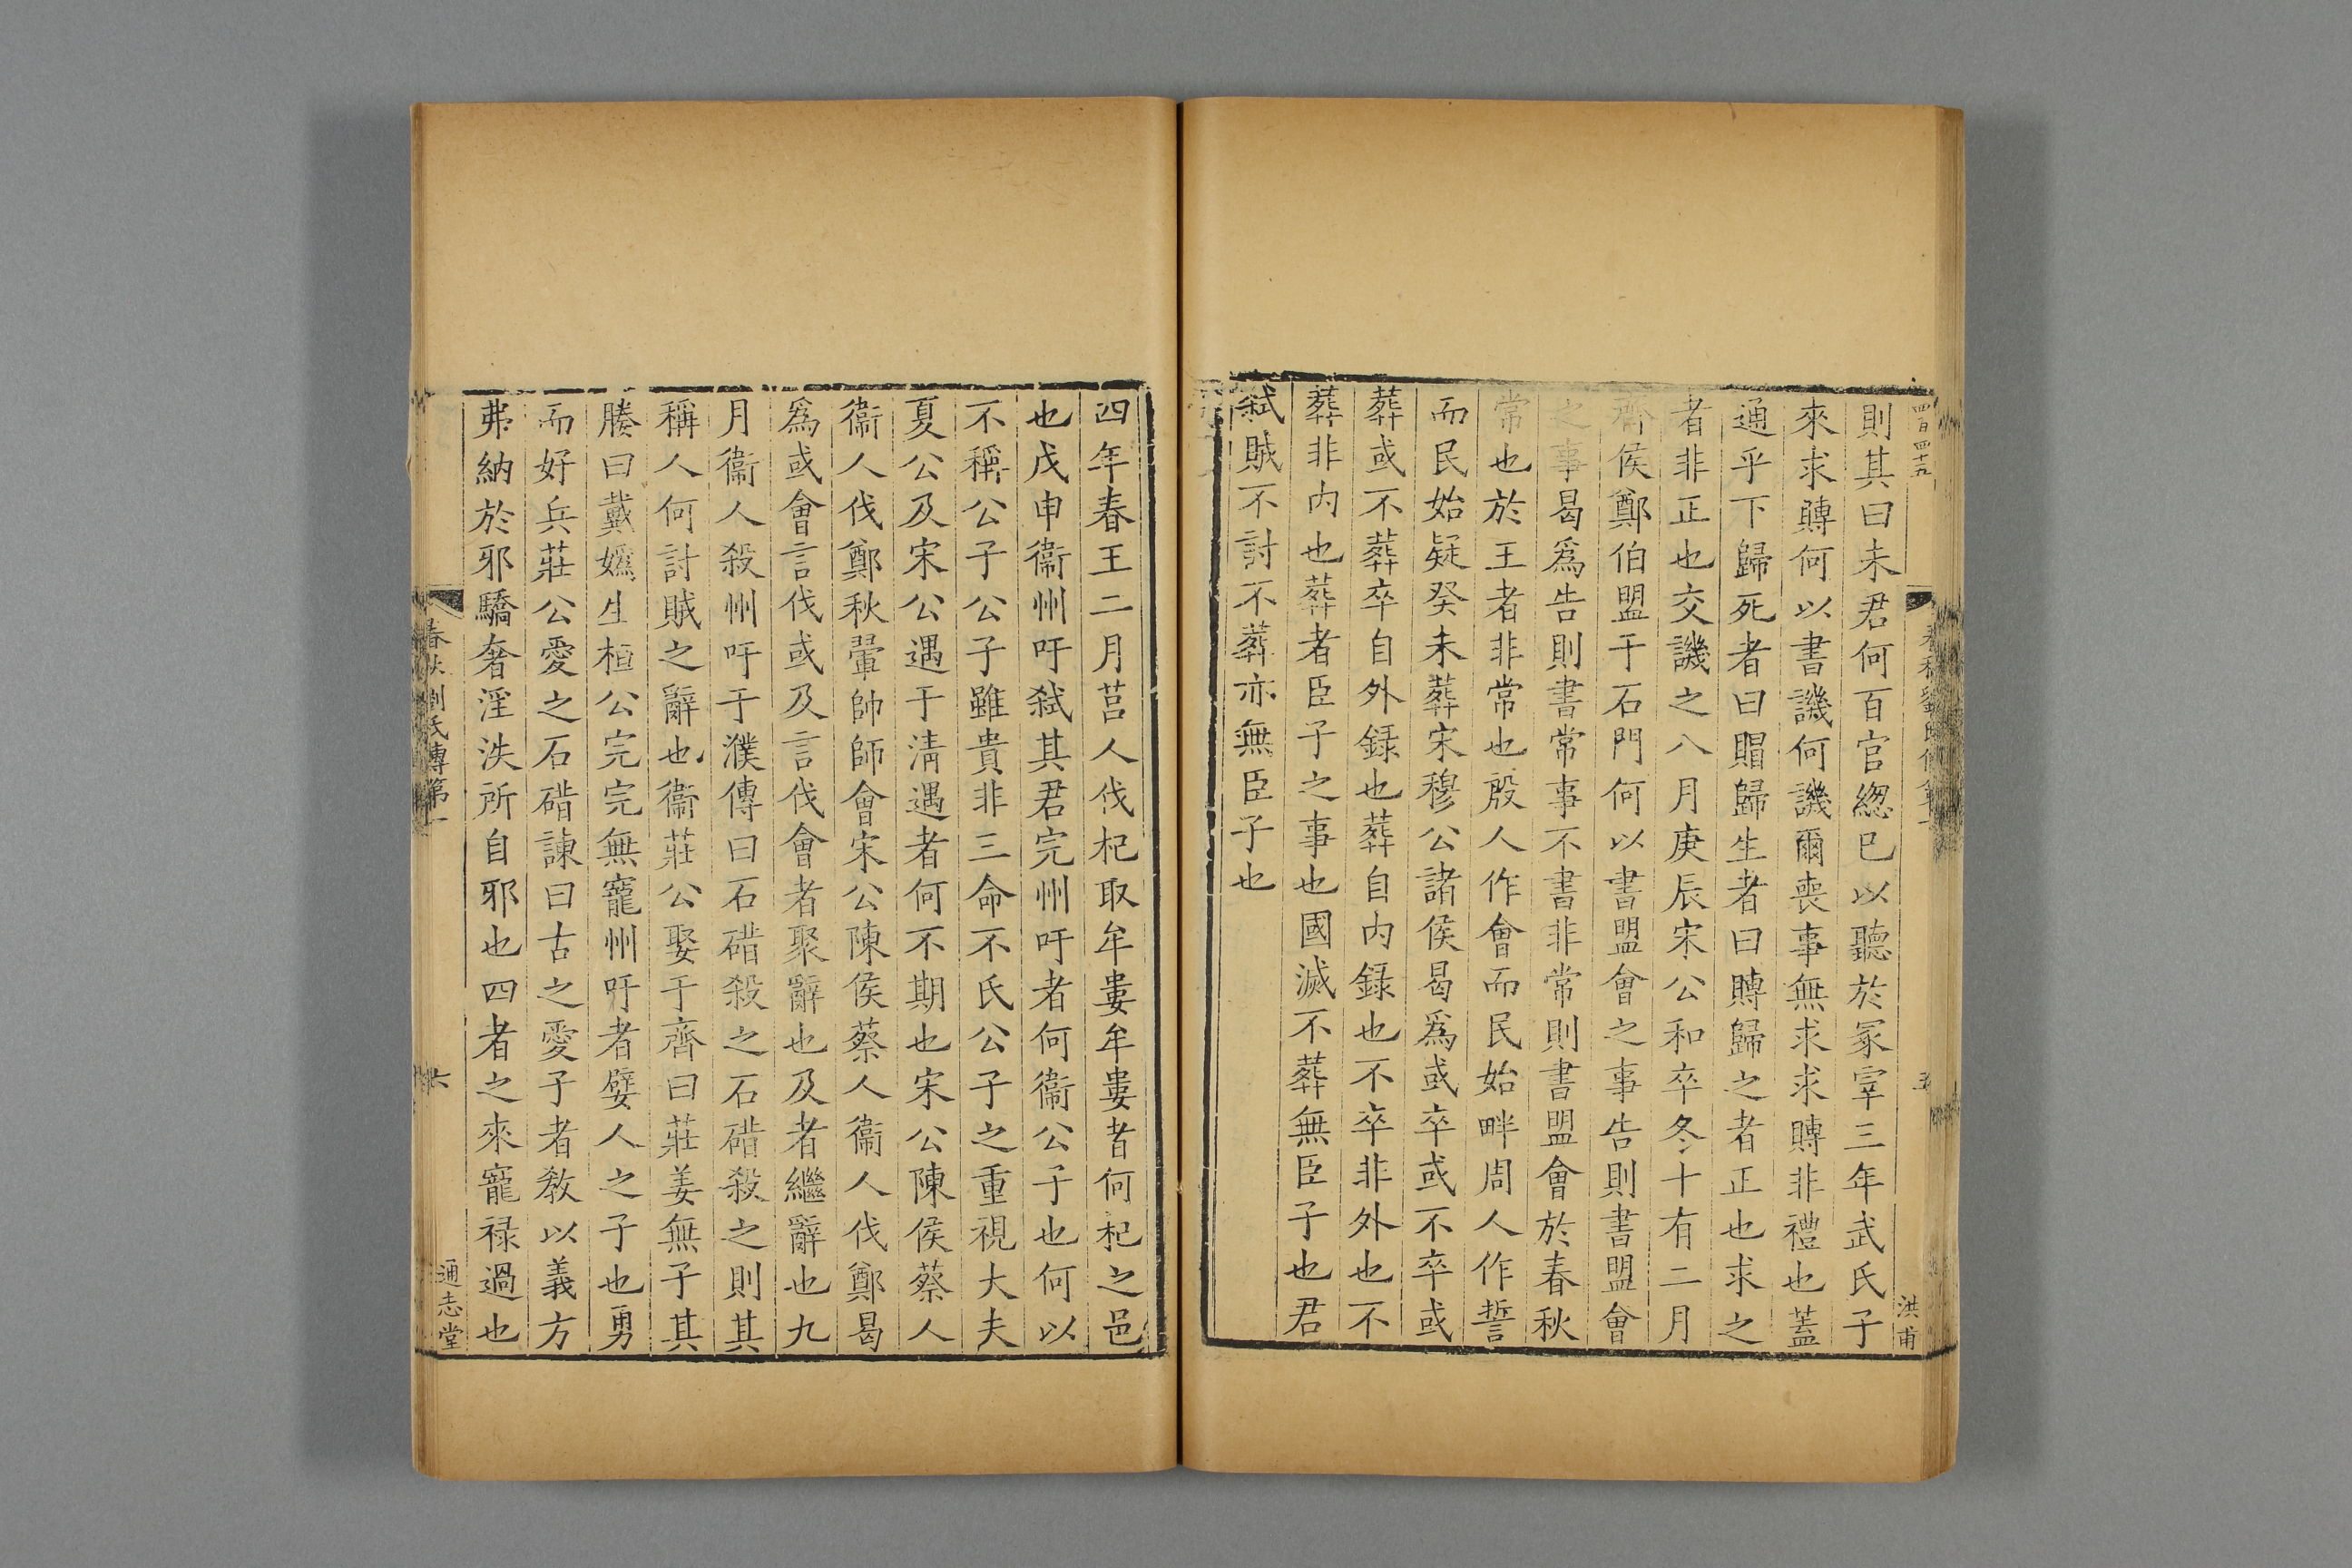 四百四十五
洪甫
則其曰未君何百官緫巳以聽於冢宰三年武氏子
來求賻何以書譏何譏爾喪事無求求賻非禮也蓋
通乎下歸死者曰賵歸生者曰賻歸之者正也求之
者非正也交譏之八月庚辰宋公和卒冬十有二月
齊侯鄭伯盟于石門何以書盟會之事告則書盟會
之事曷爲告則書常事不書非常則書盟會於春秋
常也於王者非常也殷人作會而民始畔周人作誓
而民始疑癸未葬宋穆公諸侯曷爲或卒或不卒或
葬或不葬卒自外録也葬自内録也不卒非外也不
葬非内也葬者臣子之事也國滅不葬無臣子也君
弑賊不討不葬亦無臣子也
四年春王二月莒人伐杞取牟婁牟婁者何杞之邑
也戊申衞州吁弑其君完州吁者何衞公子也何以
不稱公子公子雖貴非三命不氏公子之重視大夫
夏公及宋公遇于清遇者何不期也宋公陳侯蔡人
衞人伐鄭秋翬帥師會宋公陳侯蔡人衞人伐鄭曷
爲或會言伐或及言伐會者聚辭也及者繼辭也九
月衞人殺州吁于濮傳曰石碏殺之石碏殺之則其
稱人何討賊之辭也衞莊公娶于齊曰莊姜無子其
媵曰戴嬀生桓公完完無寵州吁者嬖人之子也勇
而好兵莊公愛之石碏諫曰古之愛子者敎以義方
弗納於邪驕奢淫泆所自邪也四者之來寵禄過也
春秋劉氏傳第一
六
通志堂